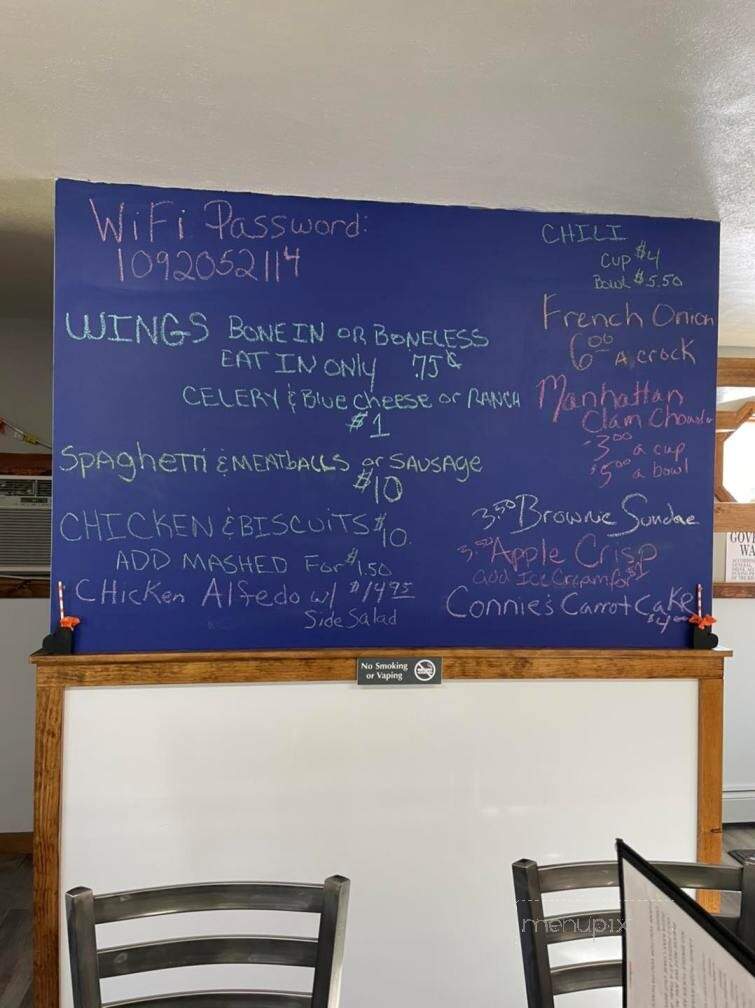 WiFi Password:
1092052114
WINGS BONE IN OR BONELESS
EAT IN ONLY .75¢
CELERY & Blue Cheese or RANCH
$1
Spaghetti & MEATballs or SAUSAGE
$10
CHICKEN & BISCUITS $10.
ADD MASHED For $1.50
CHicken Alfedo w/ $14.95
Side Salad
CHILI
Cup $4
Bowl $5.50
French Onion
6.00 A crock
Manhattan
Clam Chowder
$3.00 a cup
$5.00 a bowl
3.50 Brownie Sundae
3.50 Apple Crisp
add Ice Cream for $1
Connie's Carrot Cake
$4.00
No Smoking
or Vaping
menupix